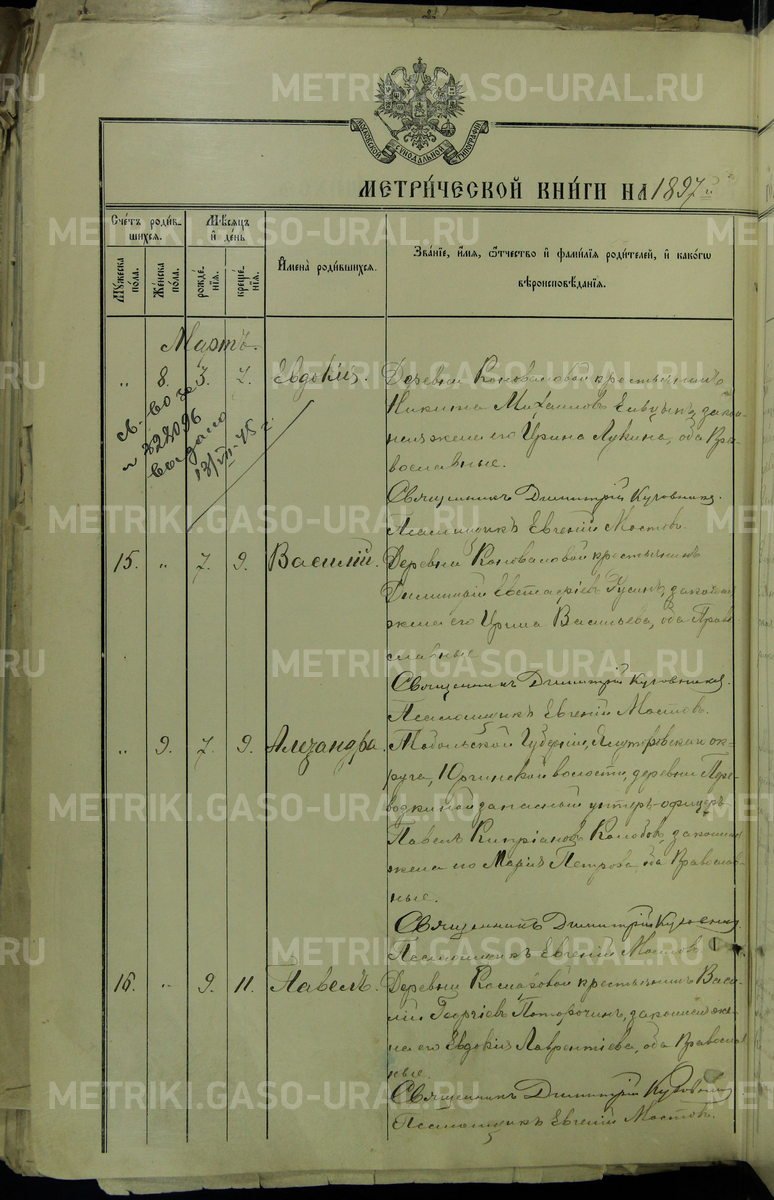 МОСКОВСКОЙ СѴНОДАЛЬНОЙ ТИПОГРАФІИ
МЕТРИ́ЧЕСКОЙ КНИ́ГИ НА 1897
Сче́тъ роди́в-
шихся.
Мꙋжеска по́ла.
Же́нска по́ла.
Мѣ́сяцъ
и҆ де́нь
рожде́-
нїя.
креще́-
нїя.
И҆мена̀ роди́вшихся.
Зва́нїе, и҆́мя, ѻ҆́тчество и҆ фами́лїя роди́телей, и҆ како́гѡ
вѣроисповѣ́данїя.
Мартъ.
„ 8. 3. 7. Евдокія. Деревни Коноваловой крестьянинъ
Никита Михаиловъ закон-
ная жена его Ирина Лукина, оба Пра-
вославные.
Священникъ Димитрій Кузовников.
Псаломщикъ Евгеній Мостов.
328096
выдано
13/VII-45 г.
15. „ 7. 9. Василій. Деревни Коноваловой крестьянинъ
Димитрій Евстафіевъ Гусинъ, законная
жена его Ирина Васильева, оба Право-
славные
Священникъ Димитрій Кузовников.
Псаломщикъ Евгеній Мостов.
„ 9. 7. 9. Александра. Тобольской Губерніи, Ялуторовскаго ок-
руга, Юргинской волости, деревни
запасный унтеръ-офицеръ
Павелъ Кипріановъ Колобовъ, законная
жена его Марія Петрова, оба Православ-
ные.
Священникъ Димитрій Кузовников
Псаломщикъ Евгеній Мостов
16. „ 9. 11. Павелъ. Деревни крестьянинъ Васи-
лій Георгіевъ Поторочинъ, законная же-
на его Евдокія Лаврентіева, оба Православ-
ные.
Священникъ Димитрій Кузовников
Псаломщикъ Евгеній Мостов.
METRIKI.GASO-URAL.RU